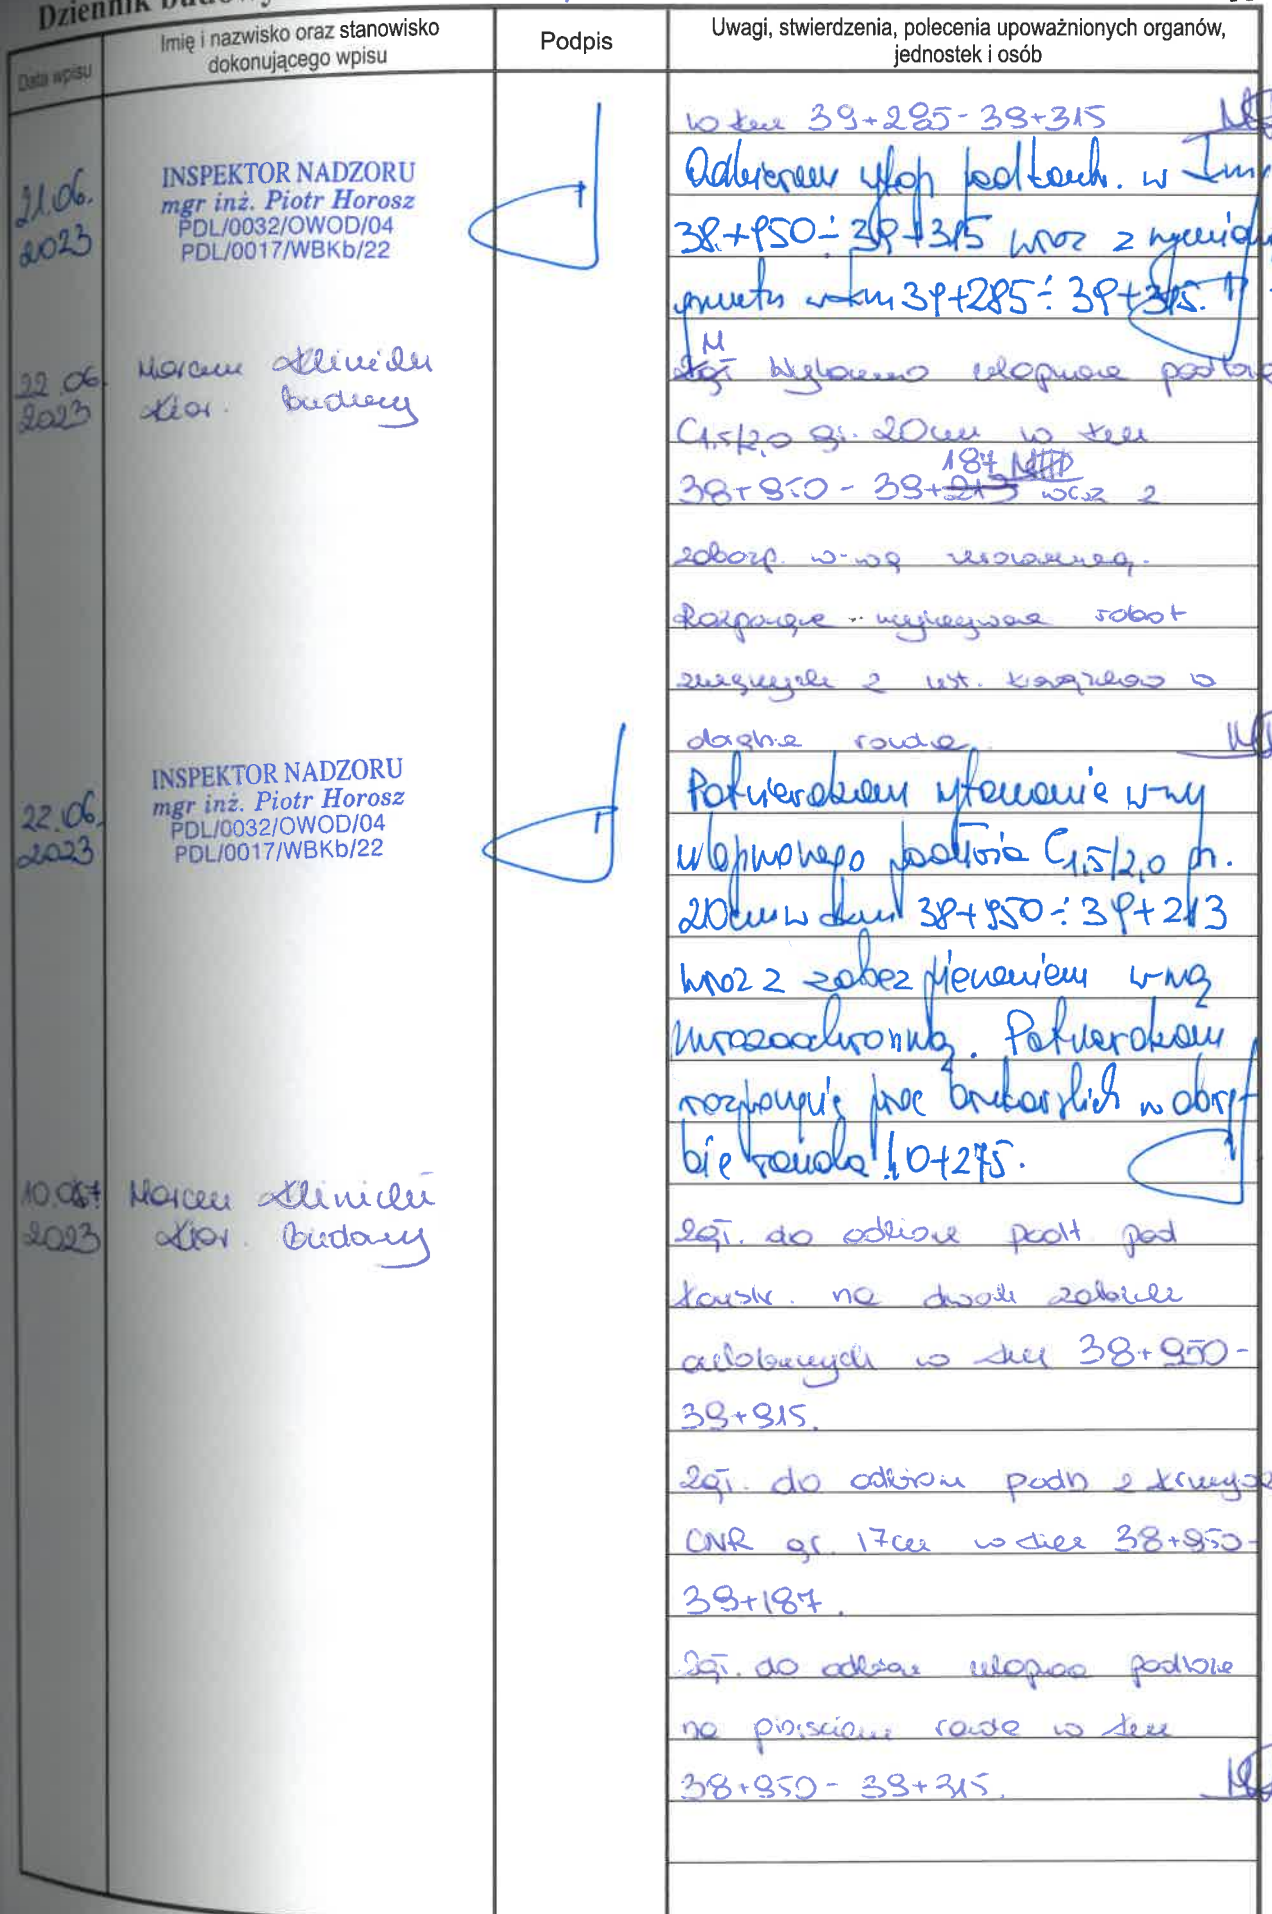 Dziennik budowy
Data wpisu
Imię i nazwisko oraz stanowisko
dokonującego wpisu
Podpis
Uwagi, stwierdzenia, polecenia upoważnionych organów,
jednostek i osób
w km 39+285-39+315
21.06.
2023
INSPEKTOR NADZORU
mgr inż. Piotr Horosz
PDL/0032/OWOD/04
PDL/0017/WBKb/22
Odbieram w
38+950÷39+315 wraz z
gruntu w km 39+285÷39+315.
22.06.
2023
Marcin
Kier. budowy
Wykonano ulepszone podłoże
C1,5/2,0 gr. 20cm w km
187
38+950 - 39+213 wraz z
zabezp. w-wą mrozoochr.
Rozpoczęcie wykonywania robot
związanych z ust. w
obrębie ronda
22.06.
2023
INSPEKTOR NADZORU
mgr inż. Piotr Horosz
PDL/0032/OWOD/04
PDL/0017/WBKb/22
Potwierdzam wykonanie w-wy
ulepszonego podłoża C1,5/2,0 gr.
20cm w km 38+950÷39+213
wraz z zabezpieczeniem w-wą
mrozoochronną. Potwierdzam
rozpoczęcie prac brukarskich w obrę-
bie ronda 0+275.
10.07
2023
Marcin
Kier. budowy
zgł. do odbioru podł. pod
konstr. na
w km 38+950-
39+915.
zgł. do odbioru podb z
CNR gr. 17cm w km 38+950-
39+187.
zgł. do odbioru ulepsz podłoże
na ronda w km
38+950 - 39+315.